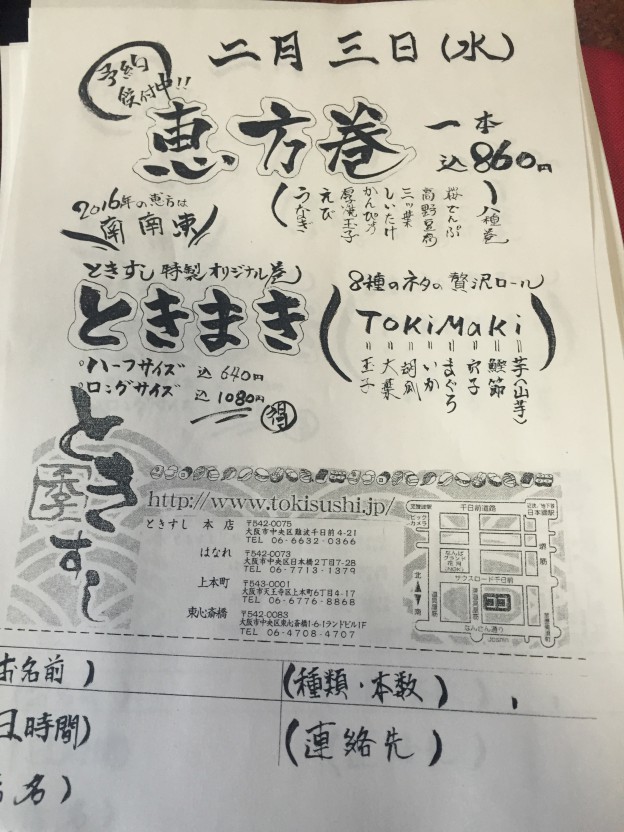 二月三日(水)
予約
受付中!!
恵方巻
一本
込860円
2016年の恵方は
南南東
(うなぎ
えび
厚焼玉子
かんぴょう
しいたけ
三ッ葉
高野豆腐
桜でんぶ
)八種巻
ときすし特製オリジナル巻
ときまき
ハーフサイズ 込640円
ロングサイズ 込1080円
得
8種のネタの贅沢ロール
TOKiMaKi
玉子
大葉
胡瓜
いか
まぐろ
穴子
鰹節
芋(山芋)
ときすし
季
http://www.tokisushi.jp/
ときすし 本店 〒542-0075
大阪市中央区難波千日前4-21
TEL 06-6632-0366
はなれ 〒542-0073
大阪市中央区日本橋2丁目7-28
TEL 06-7713-1379
上本町 〒543-0001
大阪市天王寺区上本町6丁目4-17
TEL 06-6776-8868
東心斎橋 〒542-0083
大阪市中央区東心斎橋1-6-1ランドビル1F
TEL 06-4708-4707
ビック
カメラ
千日前通路
日本橋駅
なんば
グランド
花月
(NGK)
サウスロード千日前
北
南
堺筋
なんさん通り
お名前)
(種類・本数)
日時間)
(連絡先)
名)